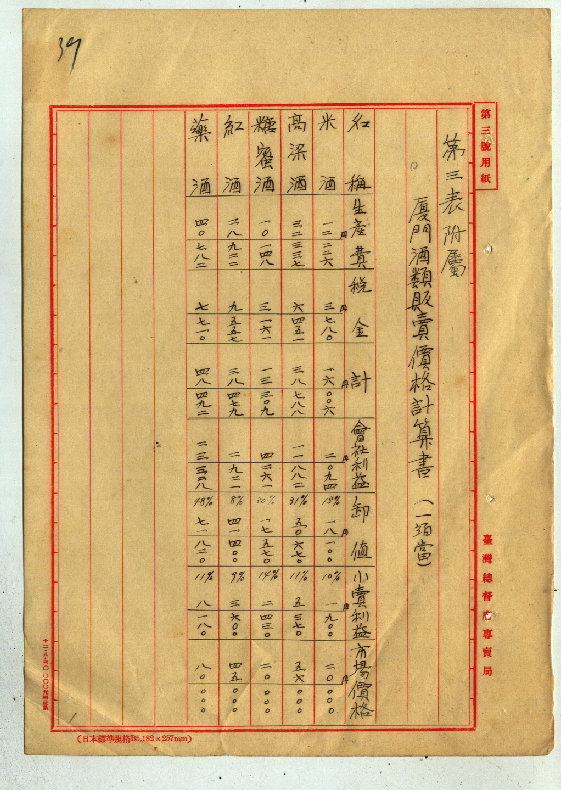 39
第三號用紙
第三表附屬
廈門酒類販賣價格計算書（一須當）
名稱 生產費 稅金 計 會社利益 卸値 小賣利益 市場價格
米酒 一二円二二六 三円七八〇 一六円〇〇六 二円〇九四 13% 一八円一〇〇 10% 一円九〇〇 二〇円〇〇〇
高梁酒 三二三三七 六四五一 三八七八八 一一八八二 31% 五〇六七〇 11% 五三七〇 五六〇〇〇
糖蜜酒 一〇一四八 三一六一 一三三〇九 四二六一 30% 一七五七〇 14% 二四三〇 二〇〇〇〇
紅酒 二八九二二 九五五七 三八四七九 二九二一 8% 四一四〇〇 9% 三六〇〇 四五〇〇〇
藥酒 四〇七八二 七七一〇 四八四九二 二三三二八 48% 七一八二〇 11% 八一八〇 八〇〇〇〇
臺灣總督府專賣局
（日本標準規格B5. 182×257mm）